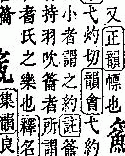 又正韻幖也
弋約切韻會弋
小者謂之箹註籥
持羽吹籥者所
耆氏之樂也釋名
集韻良